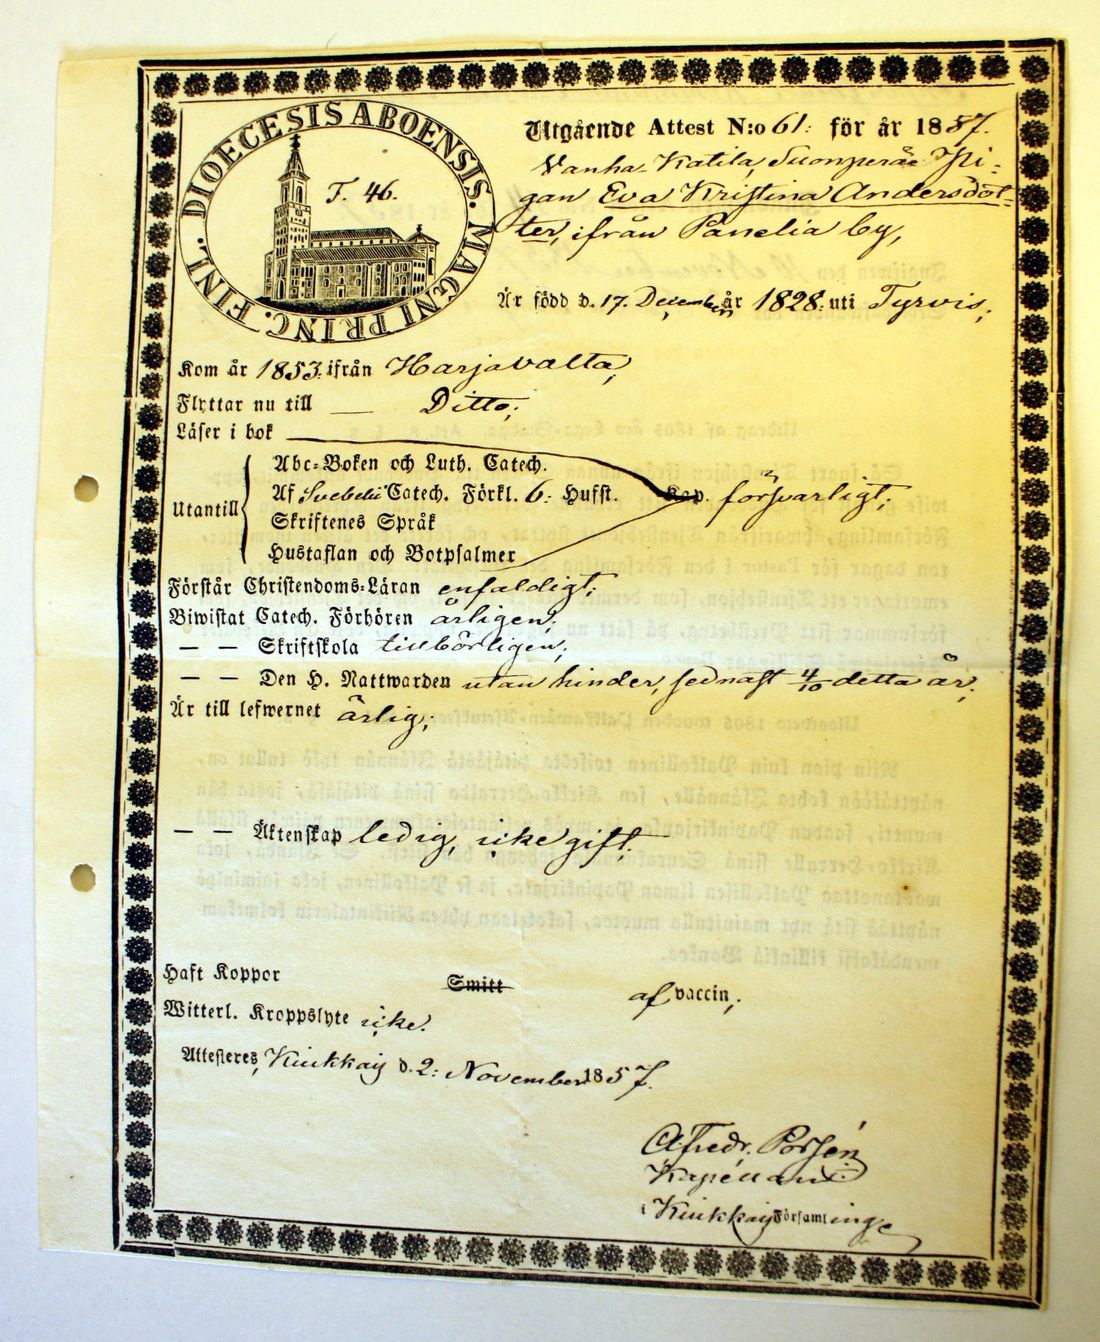 DIOECESIS ABOENSIS. MAGNI PRINC. FINL.
F. 46.
Utgående Attest N:o 61: för år 1857.
Vanha Katila, Suonperäe Pi-
gan Eva Kristina Andersdot-
ter, ifrån Panelia by,
Är född d. 17. December år 1828. uti Tyrvis,
Kom år 1853. ifrån Harjavalta,
Flyttar nu till — Ditto,
Läser i bok
Utantill
Abc-Boken och Luth. Catech.
Af Svebelii Catech. Förkl. 6: Hufst. Kap. försvarligt,
Skriftenes Språk
Hustaflan och Botpsalmer
Förstår Christendoms-Läran enfaldigt,
Biwistat Catech. Förhören årligen,
— — Skriftskola tillbörligen,
— — Den H. Nattwarden utan hinder, sednast 4/10 detta år,
Är till lefwernet ärlig,
— — Äktenskap ledig, icke gift. —
Haft Koppor Smitt af vaccin,
Witterl. Kroppslyte icke.
Attesteres, Kiukkais d. 2: November 1857.
Alfredr. Porsén
Kapellan
i Kiukkais Församling